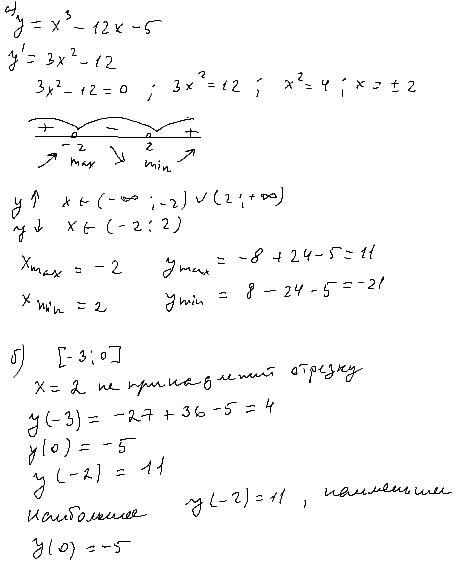 а) y = x³ - 12x - 5
y' = 3x² - 12
3x² - 12 = 0 ; 3x² = 12 ; x² = 4 ; x = ± 2
+ - +
-2 2
↗ max ↘ min ↗
y ↑ x ∈ (-∞ ; -2) ∨ (2 ; +∞)
y ↓ x ∈ (-2 ; 2)
x max = -2 y max = -8 + 24 - 5 = 11
x min = 2 y min = 8 - 24 - 5 = -21
б) [-3 ; 0]
x = 2 не принадлежит отрезку
y(-3) = -27 + 36 - 5 = 4
y(0) = -5
y(-2) = 11
наибольшее y(-2) = 11 , наименьшее
y(0) = -5